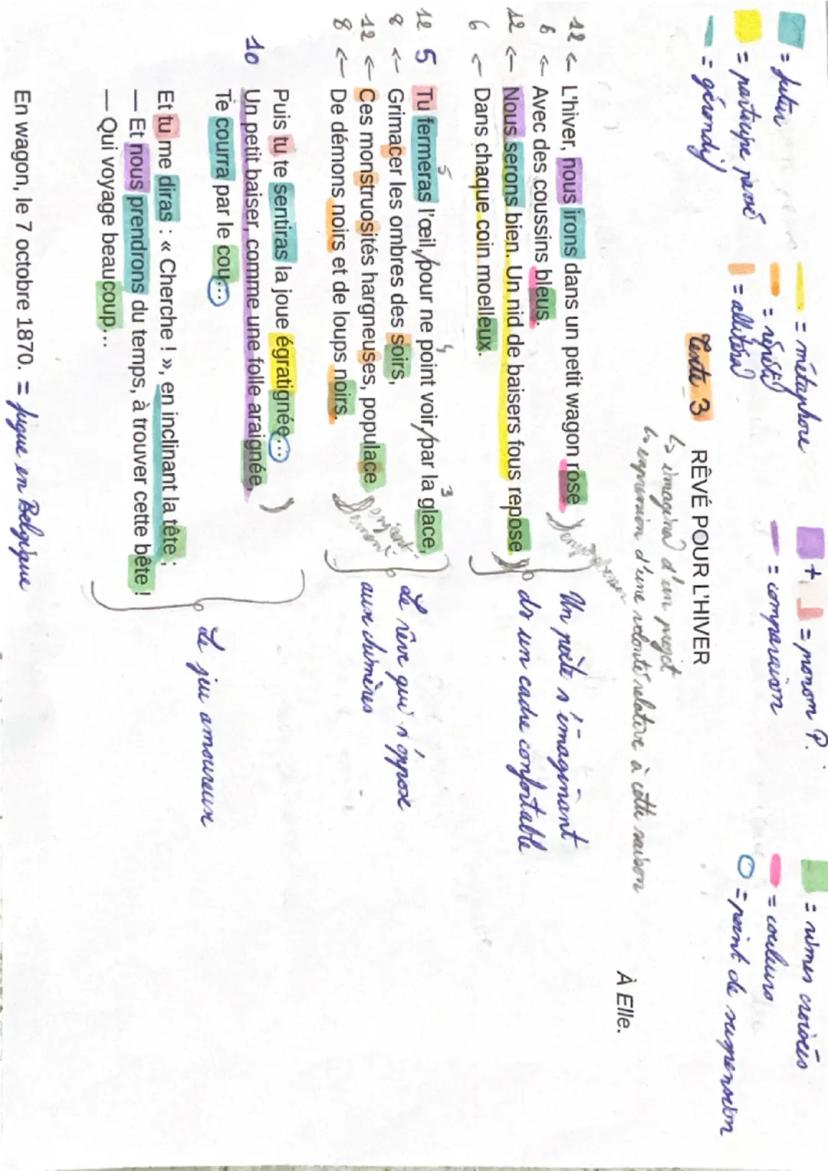 = futur
= participe passé
= gérondif
= métaphore
= répétiti°
= allitérati°
+ = pronom P.
= comparaison
= rimes croisées
= couleurs
= point de suspension
Texte 3
RÊVÉ POUR L'HIVER
↳ imaginati° d'un projet
↳ expression d'une volonté relative à cette saison
À Elle.
12 ← L'hiver, nous irons dans un petit wagon rose
6 ← Avec des coussins bleus.
12 ← Nous serons bien. Un nid de baisers fous repose
6 ← Dans chaque coin moelleux.
Un poète s'imaginant
ds un cadre confortable
12 5 Tu fermeras l'œil,/pour ne point voir/par la glace,
5 4 3
8 ← Grimacer les ombres des soirs,
12 ← Ces monstruosités hargneuses, populace
8 ← De démons noirs et de loups noirs.
Le rêve qui s'oppose
aux chimères
Puis tu te sentiras la joue égratignée...
10 Un petit baiser, comme une folle araignée,
Te courra par le cou...
Et tu me diras : « Cherche ! », en inclinant la tête ;
— Et nous prendrons du temps, à trouver cette bête !
— Qui voyage beaucoup...
Le jeu amoureux
En wagon, le 7 octobre 1870. = fugue en Belgique